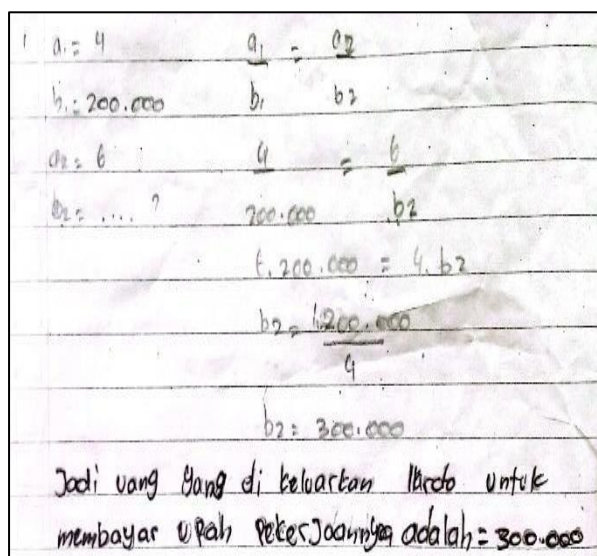 1 a₁ = 4 a₁ = a₂
b₁ = 200.000 b₁ b₂
a₂ = 6 4 = 6
b₂ = .... ? 200.000 b₂
6.200.000 = 4.b₂
b₂ = 1.200.000
4
b₂ = 300.000
Jadi uang yang di keluarkan untuk
membayar upah pekerjaannya adalah = 300.000